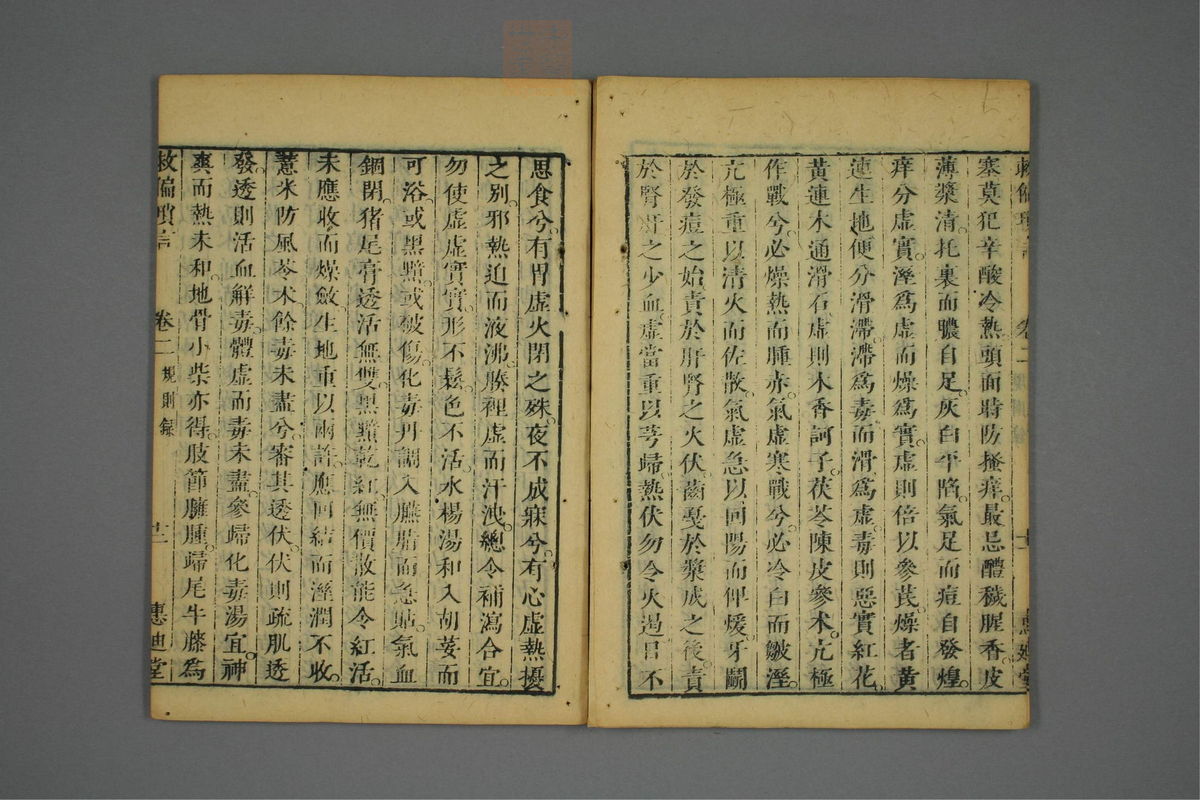 救偏瑣言 卷二 惠迪堂
塞莫犯辛酸冷熱頭面時防搔痒最忌醴穢腥香皮
薄漿清托裏而膿自足灰白平陷氣足而痘自發煌
痒分虛實溼爲虛而燥爲實虛則倍以參芪燥者黃
連生地便分滑滯滯爲毒而滑爲虛毒則惡實紅花
黃連木通滑石虛則木香訶子茯苓陳皮參朮亢極
作戰兮必燥熱而腫赤氣虛寒戰兮必冷白而皺溼
亢極重以清火而佐散氣虛急以回陽而伸煖牙鬭
於發痘之始責於肝腎之火伏齒戞於漿成之後責
於腎肝之少血虛當重以芎歸熱伏勿令火過目不
思食兮有胃虛火閉之殊夜不成寐兮有心虛熱擾
之別邪熱迫而液沸腠裡虛而汗洩總令補瀉合宜
勿使虛虛實實形不鬆色不活水楊湯和入胡荽而
可浴或黑黯或破傷化毒丹調入臙脂而急貼氣血
錮閉猪尾膏透活無雙黑黯乾紅無價散能令紅活
未應收而燥斂生地重以兩許應回結而溼潤不收
薏米防風苓朮餘毒未盡兮審其透伏伏則疏肌透
發透則活血觧毒體虛而毒未盡參歸化毒湯宜神
爽而熱未和地骨小柴亦得肢節臃腫歸尾牛膝爲
救偏瑣言 卷二 規則錄 十二 惠迪堂